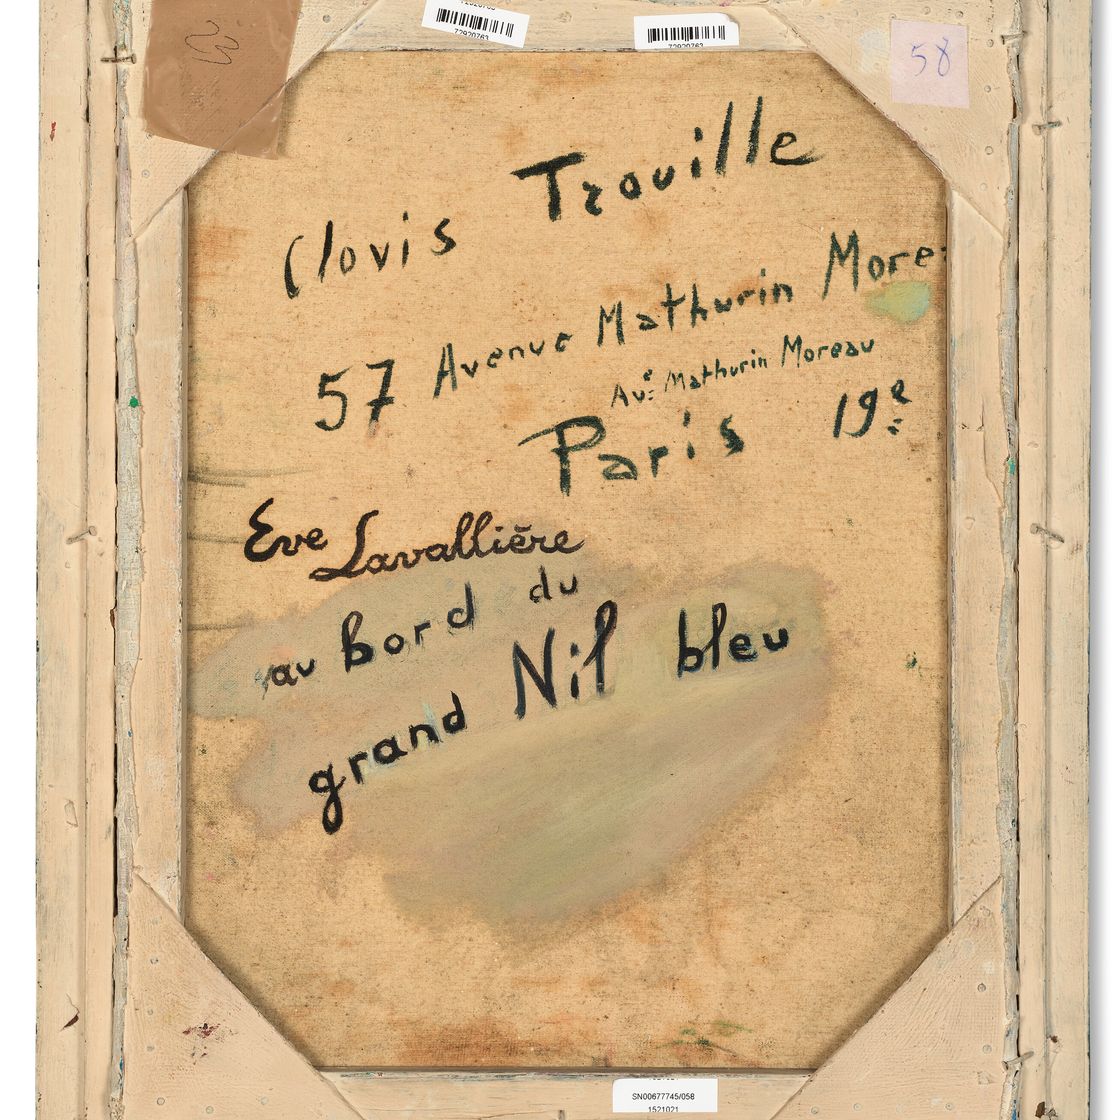 72920763
72920763
58
Clovis Trouille
57 Avenue Mathurin More
Ave Mathurin Moreau
Paris 19e
Eve Lavallière
au Bord du
grand Nil bleu
SN00677745/058
1521021